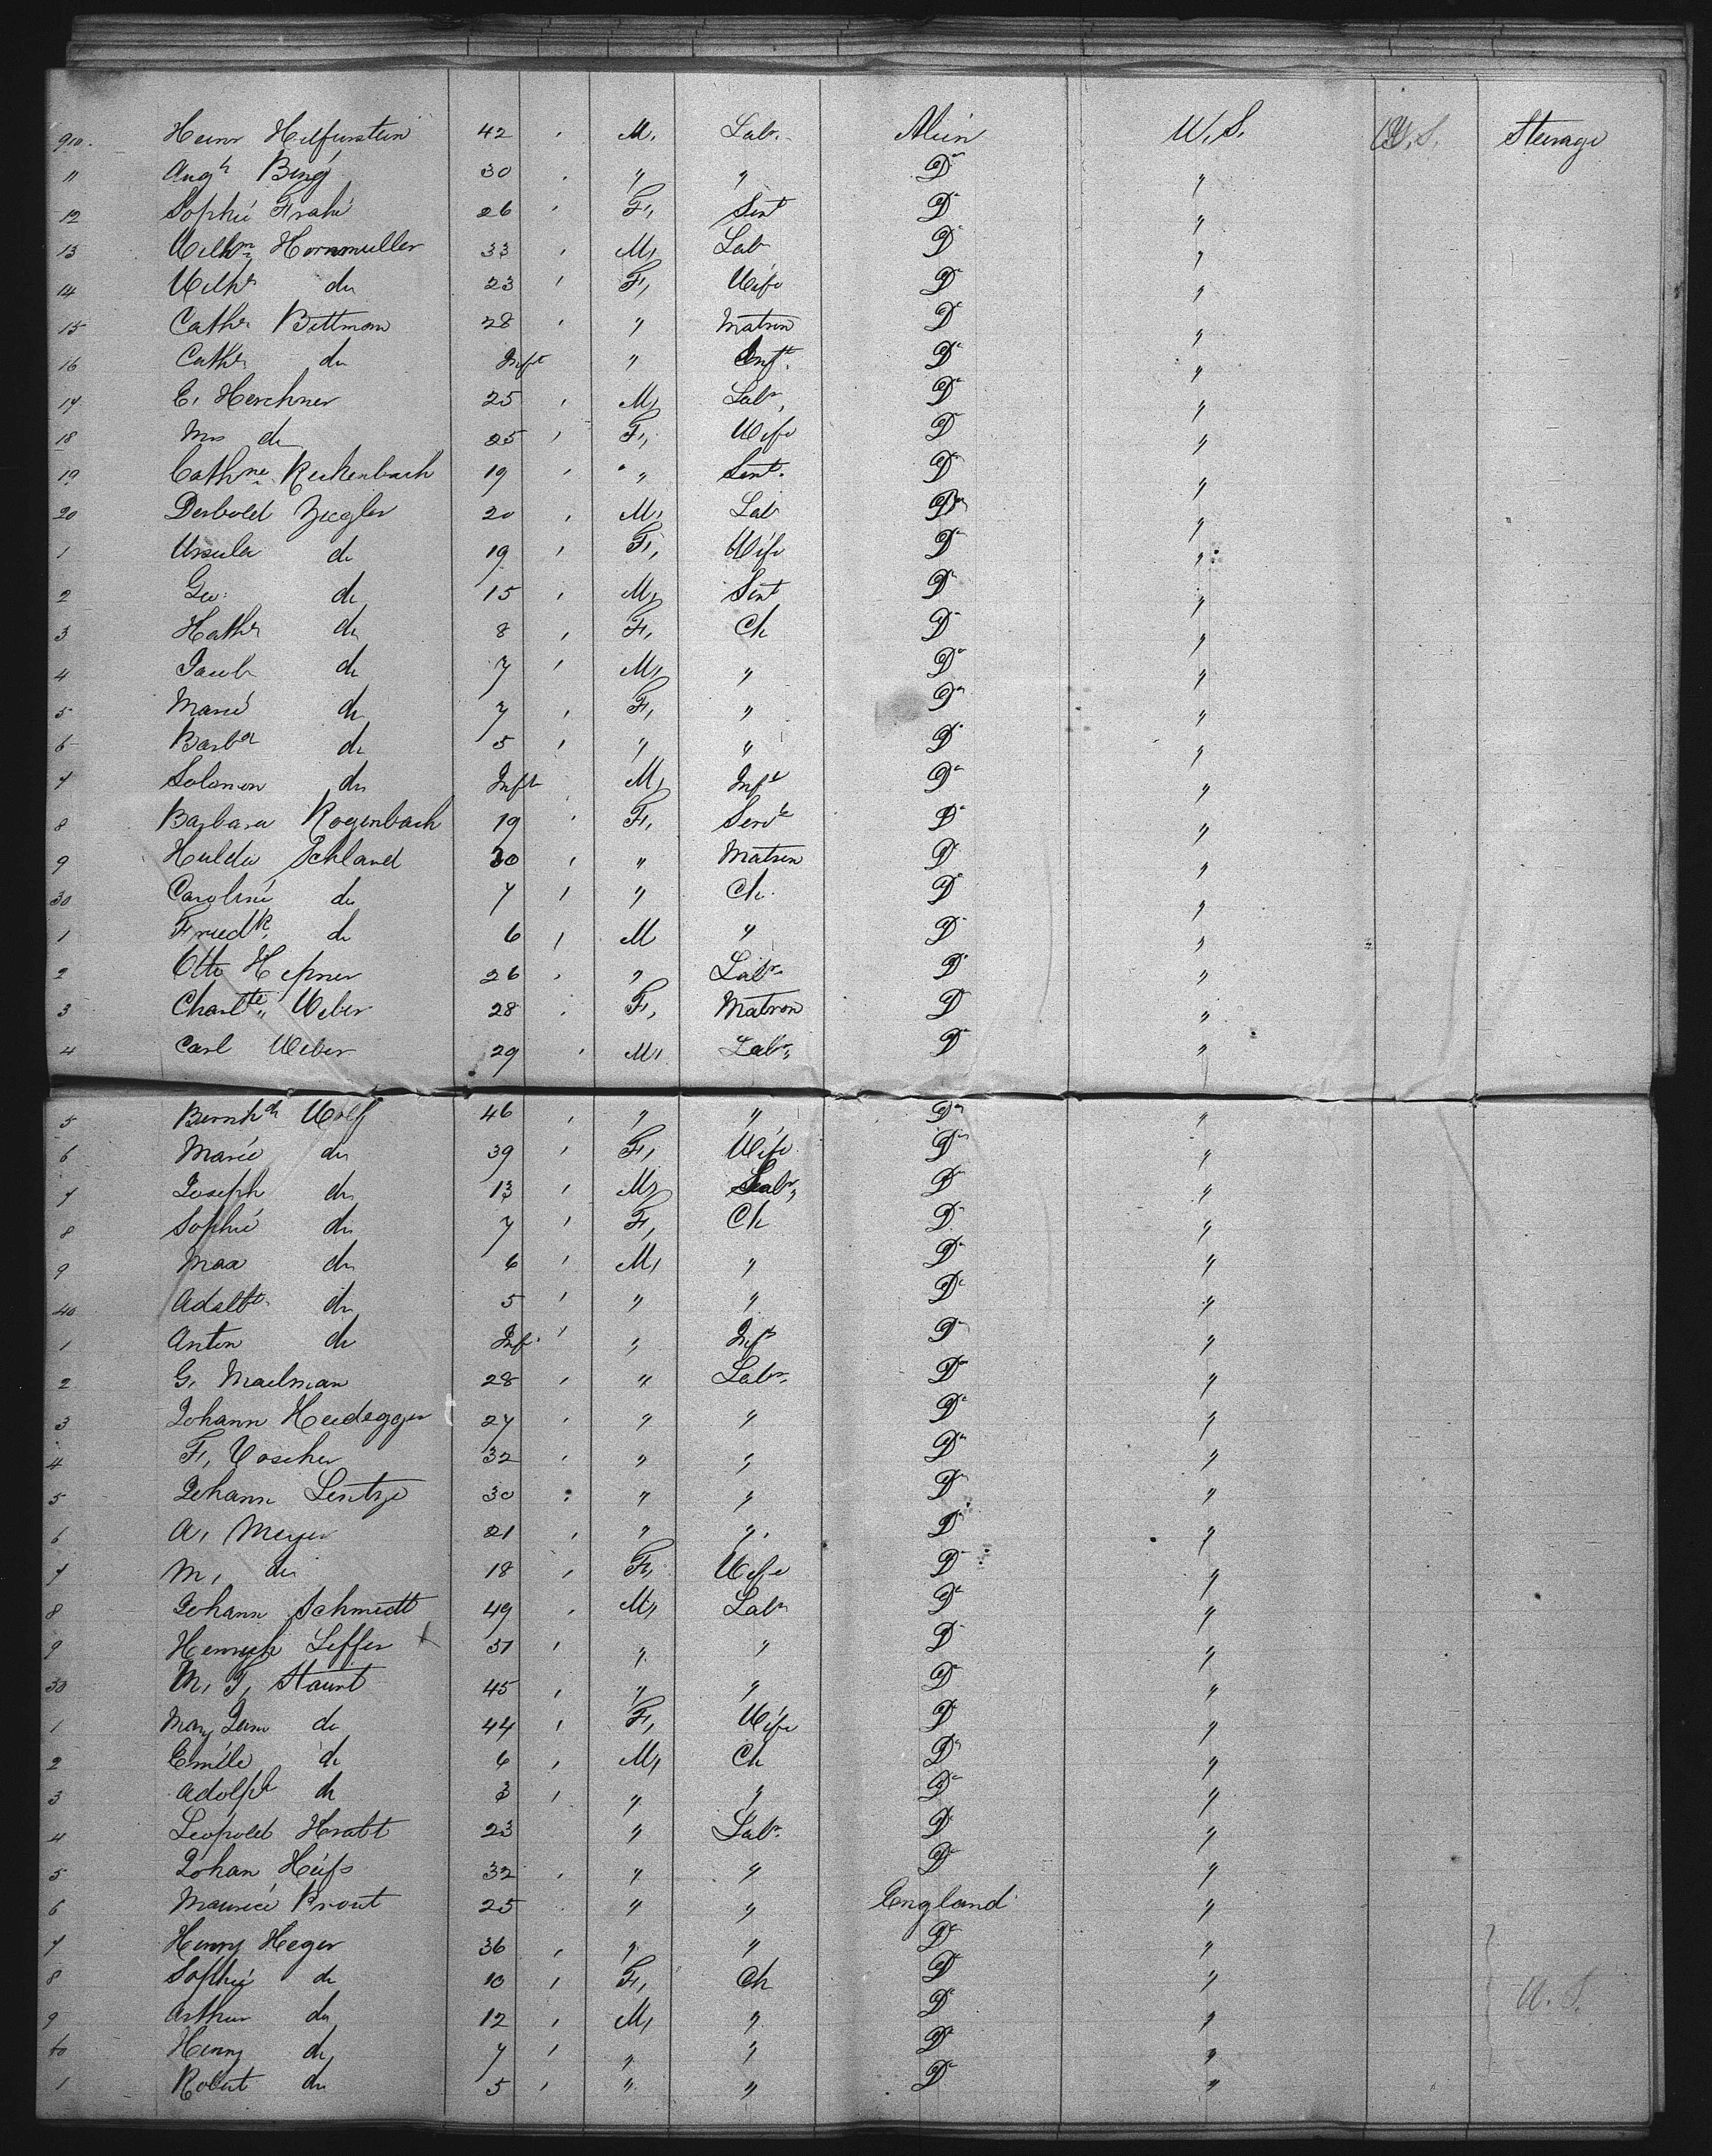 910. Heinr Hilfurstein 42 M. Labr. Alien U.S. U.S. Steerage
11 Augt Bing 30 " " Do "
12 Sophie Frahé 26 F, Sert Do "
13 Wilhm Hornmuller 33 M, Lab Do "
14 Wilhe do 23 F, Wife Do "
15 Cathe Bittman 28 " Matron Do "
16 Cathe do Inft " Inft. Do "
17 E. Herchner 25 M, Labr, Do "
18 Mrs do 25 F, Wife Do "
19 Cathne Reckenbach 19 " Sert. Do "
20 Ziegler 20 M, Lab Do "
1 Ursula do 19 F, Wife Do "
2 Geo: do 15 M, Sert Do "
3 Kathe do 8 F, Ch Do "
4 Jacob do 7 M, " Do "
5 Marie do 7 F, " Do "
6 Barba do 5 " " Do "
7 Solomon do Inft M, Inft Do "
8 Barbara Rogenbach 19 F, Servt Do "
9 Hulda Schland 30 " Matron Do "
30 Caroline do 7 " Ch. Do "
1 Friedk. do 6 M " Do "
2 Otto Hepner 26 " Labr. Do "
3 Charltte " Weber 28 F, Matron Do "
4 Carl Weber 29 M, Labr, Do "
5 Bernhd Wolf 46 " " Do "
6 Marie do 39 F, Wife Do "
7 Joseph do 13 M, Labr, Do "
8 Sophie do 7 F, Ch Do "
9 Max do 6 M, " Do "
40 Adalbt do 5 " " Do "
1 Anton do Inf " Inft Do "
2 G. Maelman 28 " Labr. Do "
3 Johann Heidegger 27 " " Do "
4 F, Voscher 32 " " Do "
5 Johann Lentze 30 " " Do "
6 A, Meyer 21 " " Do "
7 M, do 18 F, Wife Do "
8 Johann Schmidt 49 M, Labr Do "
9 Henrych Leffer x 51 " " Do "
30 M, F, Staunt 45 " " Do "
1 Mary Jane do 44 F, Wife Do "
2 Emile do 6 M, Ch Do "
3 Adolph do 3 " " Do "
4 Leopold Hratt 23 " Labr. Do "
5 Johan Heifs 32 " " Do "
6 Maurice Prout 25 " " England "
7 Henry Heger 36 " " Do "
8 Sophie do 10 F, Ch Do " U.S.
9 Arthur do 12 M, " Do "
60 Henry do 7 " " Do "
1 Robert do 5 " " Do "